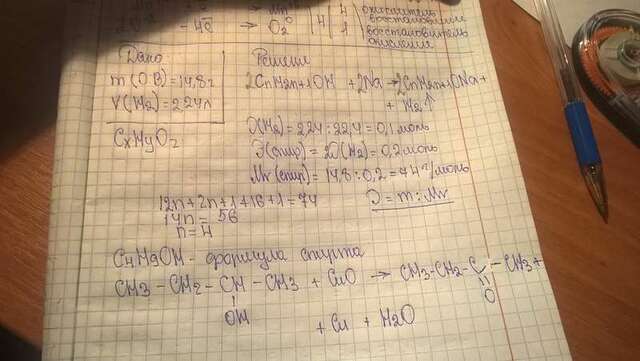 - 4ē → O₂⁰ | 4 | 1 восстановитель
окисление
Дано
m(ОВ)=14,8г
V(H₂)=2,24л
CxHyOz
Решение
2CnH2n+1OH + 2Na → 2CnH2n+1ONa +
+ H₂↑
Э(H₂) = 2,24 : 22,4 = 0,1 моль
Э(спир) = 2Э(H₂) = 0,2 моль
Mr(спир) = 14,8 : 0,2 = 74 г/моль
12n+2n+1+16+1=74
Э = m : Mr
14n = 56
n = 4
C4H9OH - формула спирта
CH3 - CH2 - CH - CH3 + CuO → CH3-CH2-C - CH3 +
OH
O
+ Cu + H2O